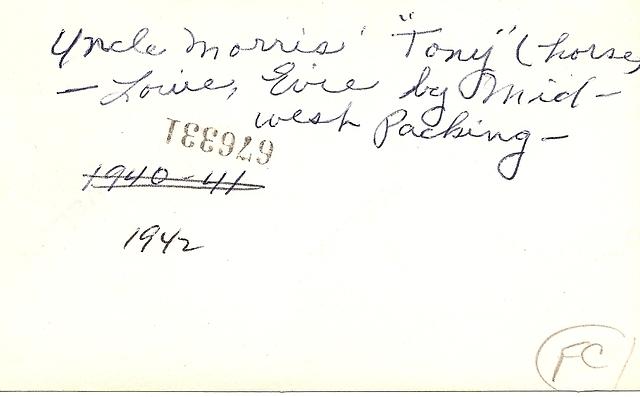 Uncle Morris' "Tony" (horse)
— Louie, Evie by Mid-
west Packing —
676331
1940-41
1942
FC